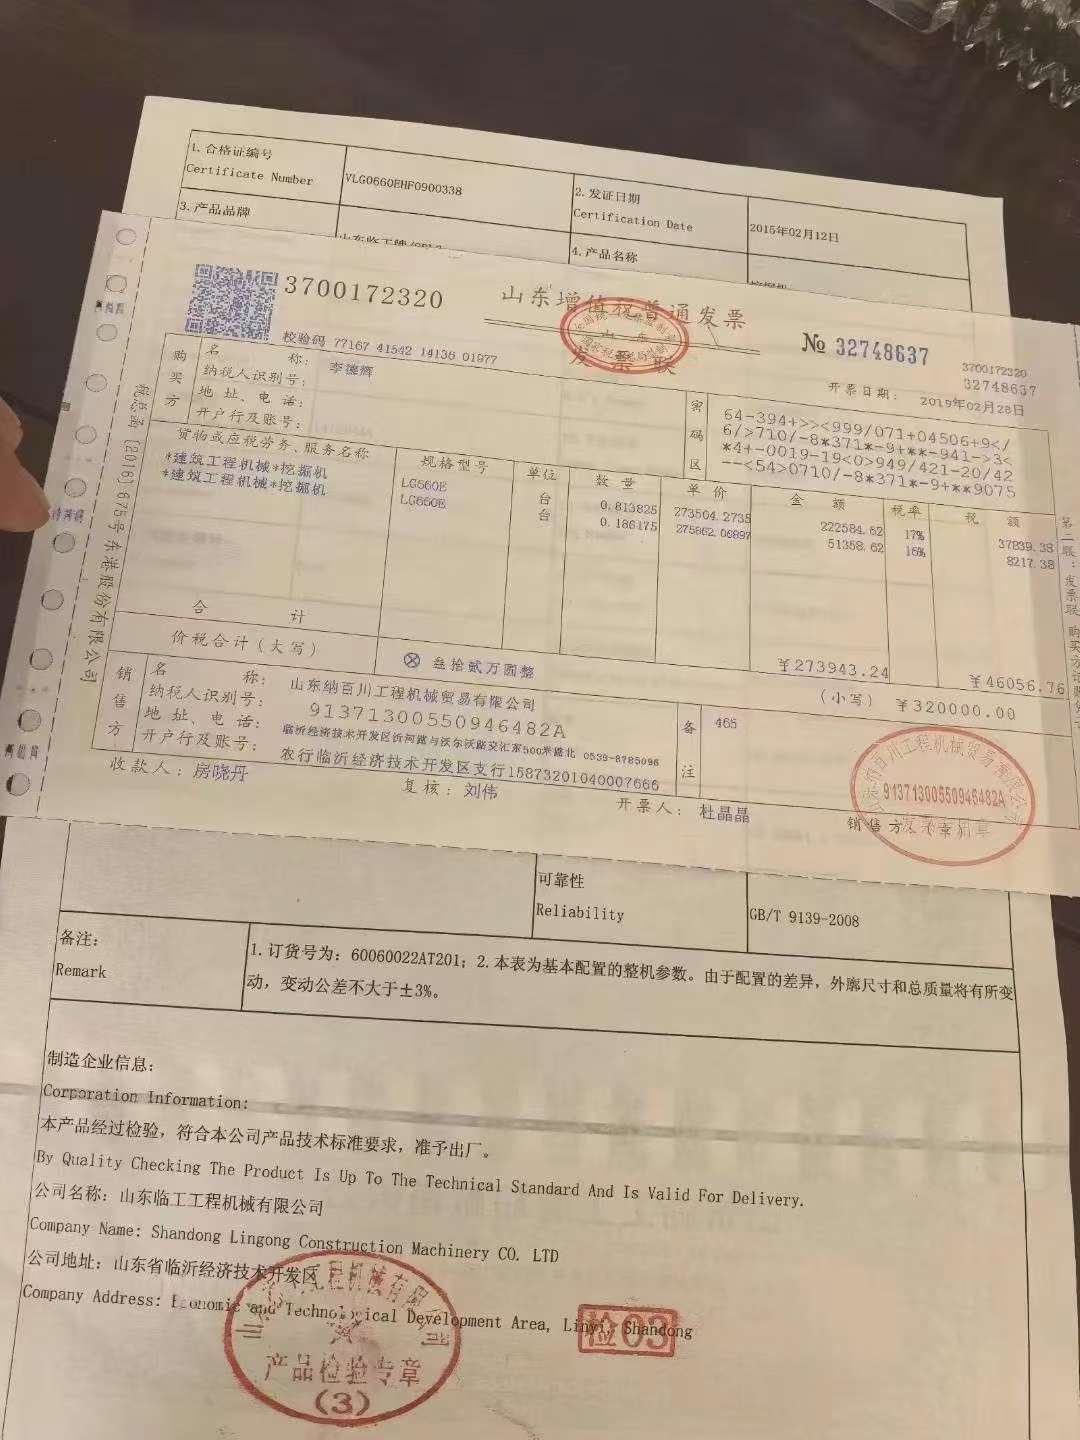 1.合格证编号
Certificate Number
VLG0660EHF0900338
2.发证日期
Certification Date
2015年02月12日
3.产品品牌
4.产品名称
3700172320
山东增值税普通发票
发票联
№ 32748637
3700172320
32748637
校验码 77167 41542 14136 01977
开票日期: 2019年02月28日
购买方
名 称: 李德辉
纳税人识别号:
地 址、电 话:
开户行及账号:
密码区
64-394+>><999/071+04506+9</
6/>710/-8*371*-9+**-941->3<
*4+-0019-19<0>949/421-20/42
--<54>0710/-8*371*-9+**9075
货物或应税劳务、服务名称 规格型号 单位 数 量 单 价 金 额 税率 税 额
*建筑工程机械*挖掘机 LG660E 台 0.813825 273504.2735 222584.62 17% 37839.38
*建筑工程机械*挖掘机 LG660E 台 0.186175 275862.06897 51358.62 16% 8217.38
合 计 ¥273943.24 ¥46056.76
价税合计(大写) ⊗ 叁拾贰万圆整 (小写) ¥320000.00
销售方
名 称: 山东纳百川工程机械贸易有限公司
纳税人识别号: 91371300550946482A
地 址、电 话: 临沂经济技术开发区沂河路与沃尔沃路交汇东500米路北 0539-8785096
开户行及账号: 农行临沂经济技术开发区支行15873201040007666
备注
465
收款人: 房晓丹 复核: 刘伟 开票人: 杜晶晶 销售方:
91371300550946482A
税总函〔2016〕675号东港股份有限公司
第二联:发票联
可靠性
Reliability
GB/T 9139-2008
备注:
Remark
1.订货号为: 60060022AT201; 2.本表为基本配置的整机参数。由于配置的差异,外廓尺寸和总质量将有所变
动,变动公差不大于±3%。
制造企业信息:
Corporation Information:
本产品经过检验,符合本公司产品技术标准要求,准予出厂。
By Quality Checking The Product Is Up To The Technical Standard And Is Valid For Delivery.
公司名称: 山东临工工程机械有限公司
Company Name: Shandong Lingong Construction Machinery CO. LTD
公司地址: 山东省临沂经济技术开发区
Company Address: Economic and Technological Development Area, Linyi, Shandong
产品检验专章
(3)
检03